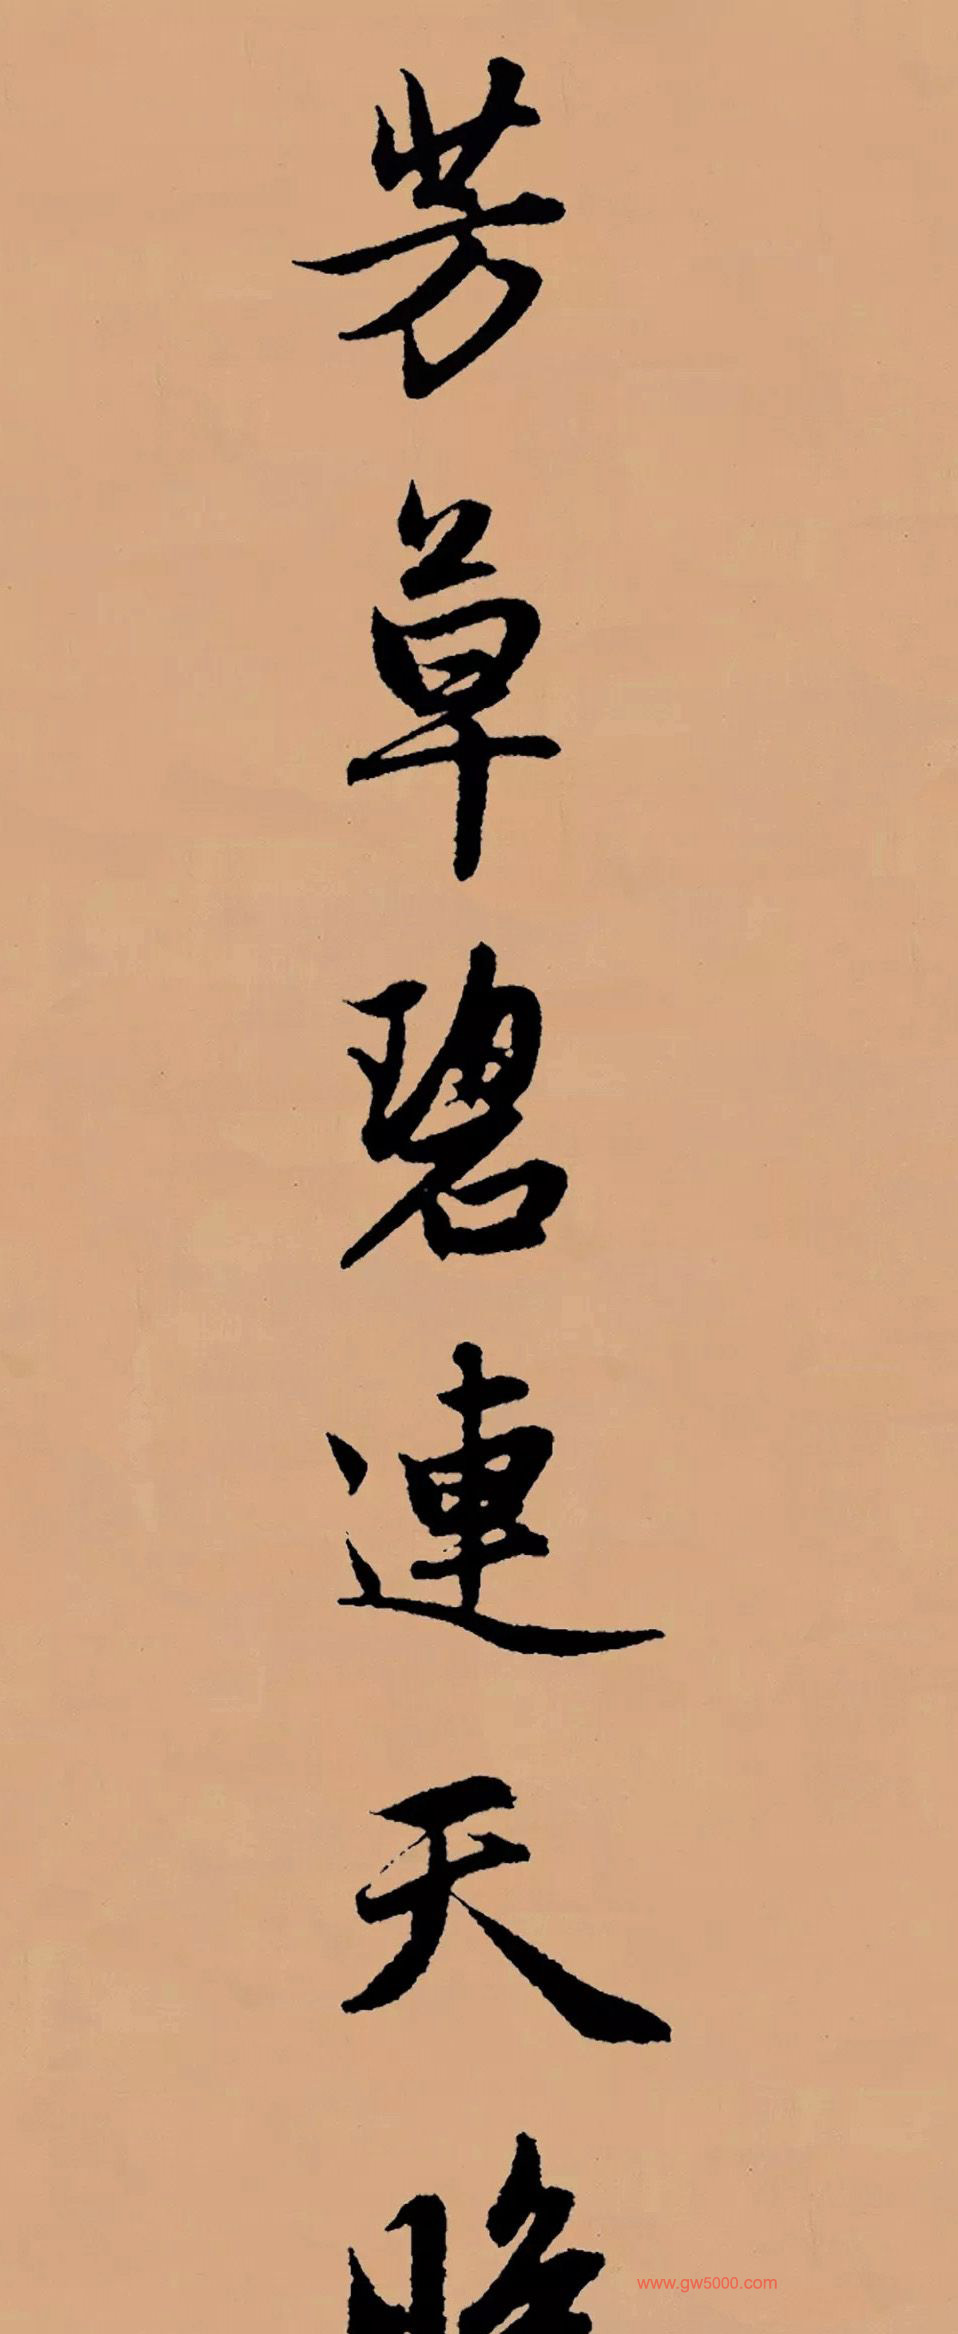 芳草碧連天
www.gw5000.com